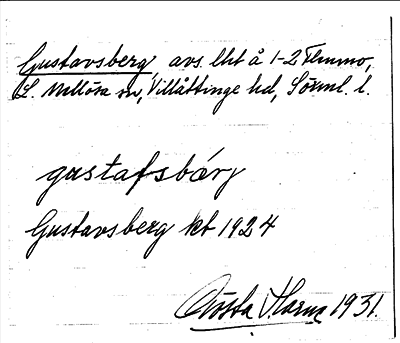 Gustavsberg avs. lht å 1-2 Flemmo,
L. Mellösa sn, Villåttinge hd, Sörml. l.
gustafsbärj
Gustavsberg kb 1924
Gösta Harm 1931.